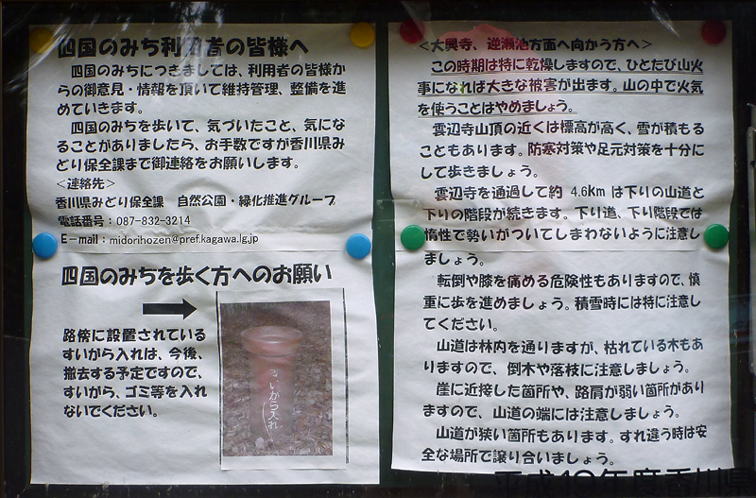 四国のみち利用者の皆様へ
四国のみちにつきましては、利用者の皆様か
らの御意見・情報を頂いて維持管理、整備を進
めていきます。
四国のみちを歩いて、気づいたこと、気にな
ることがありましたら、お手数ですが香川県み
どり保全課まで御連絡をお願いします。
<連絡先>
香川県みどり保全課 自然公園・緑化推進グループ
電話番号：087-832-3214
E-mail：midorihozen@pref.kagawa.lg.jp
四国のみちを歩く方へのお願い
路傍に設置されている
すいがら入れは、今後、
撤去する予定ですので、
すいがら、ゴミ等を入れ
ないでください。
すいがら入れ
<大興寺、逆瀬池方面へ向かう方へ>
この時期は特に乾燥しますので、ひとたび山火
事になれば大きな被害が出ます。山の中で火気
を使うことはやめましょう。
雲辺寺山頂の近くは標高が高く、雪が積もる
こともあります。防寒対策や足元対策を十分に
して歩きましょう。
雲辺寺を通過して約 4.6km は下りの山道と
下りの階段が続きます。下り道、下り階段では
惰性で勢いがついてしまわないように注意し
ましょう。
転倒や膝を痛める危険性もありますので、慎
重に歩を進めましょう。積雪時には特に注意し
てください。
山道は林内を通りますが、枯れている木もあ
りますので、倒木や落枝に注意しましょう。
崖に近接した箇所や、路肩が弱い箇所があり
ますので、山道の端には注意しましょう。
山道が狭い箇所もあります。すれ違う時は安
全な場所で譲り合いましょう。
平成19年度香川県